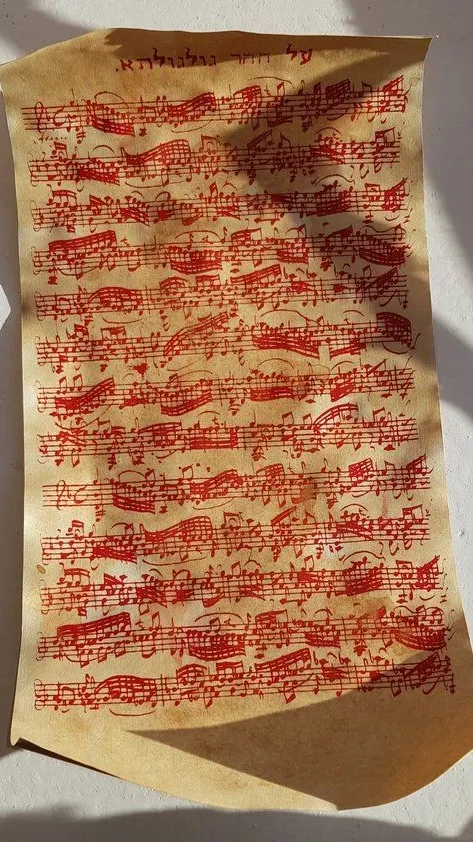 על ההר גולגולתא.